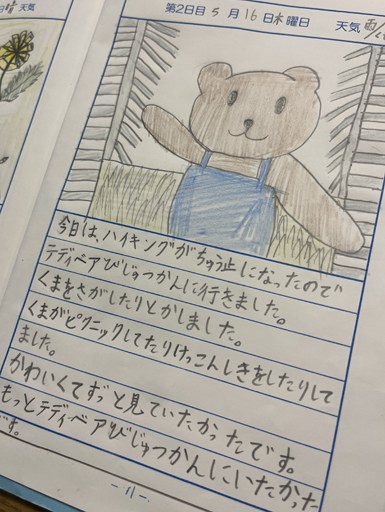 晴 天気
第2日目 5月16日木曜日 天気 雨
今日は、ハイキングがちゅう止になったので
テディベアびじゅつかんに行きました。
くまをさがしたりとかしました。
くまがピクニックしてたりけっこんしきをしたりして
ました。
かわいくてずっと見ていたかったです。
もっとテディベアびじゅつかんにいたかった
です。
-11-